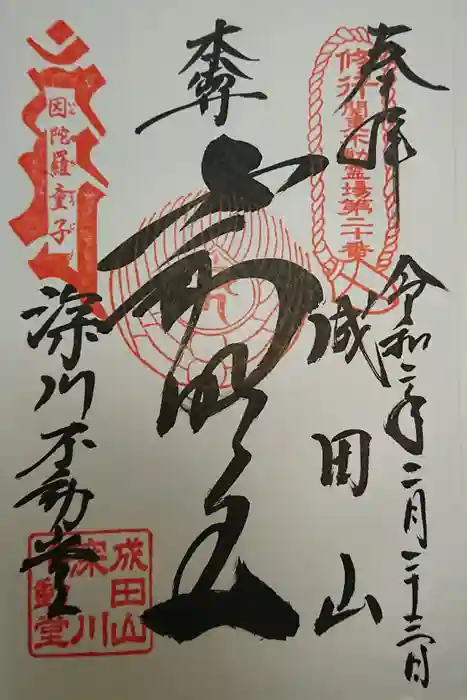 奉拝
令和二年二月二十三日
修行
関東不動霊場第二十番
成田山
本尊
不動明王
因陀羅童子
いんだらどうじ
深川不動堂
成田山
深川
不動堂